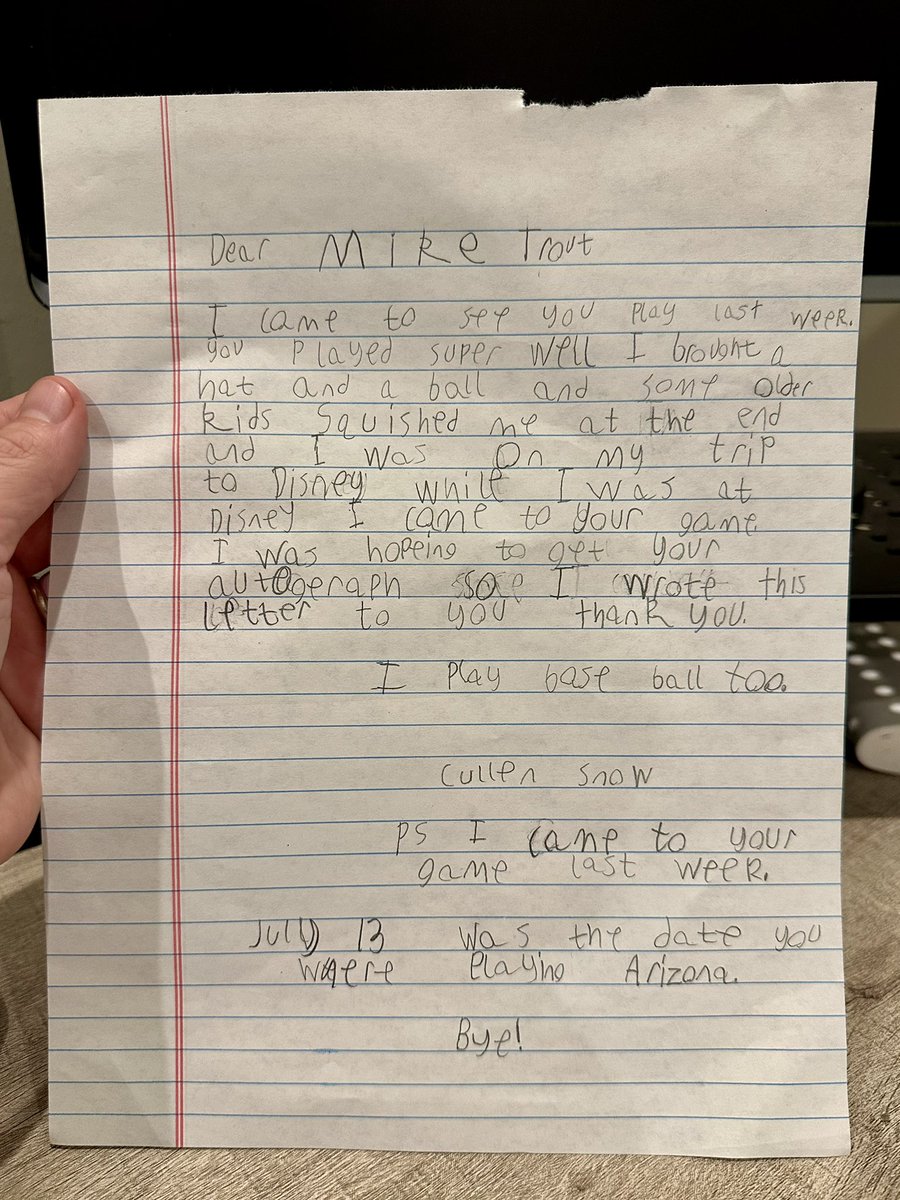 Dear Mike Trout
I came to see you play last week.
you played super well I brought a
hat and a ball and some older
kids squished me at the end
and I was on my trip
to Disney while I was at
Disney I came to your game
I was hopeing to get your
autogeraph so I wrote this
letter to you thank you.
I play base ball too.
Cullen Snow
PS I came to your
game last week.
July 13 was the date you
where playing Arizona.
Bye!